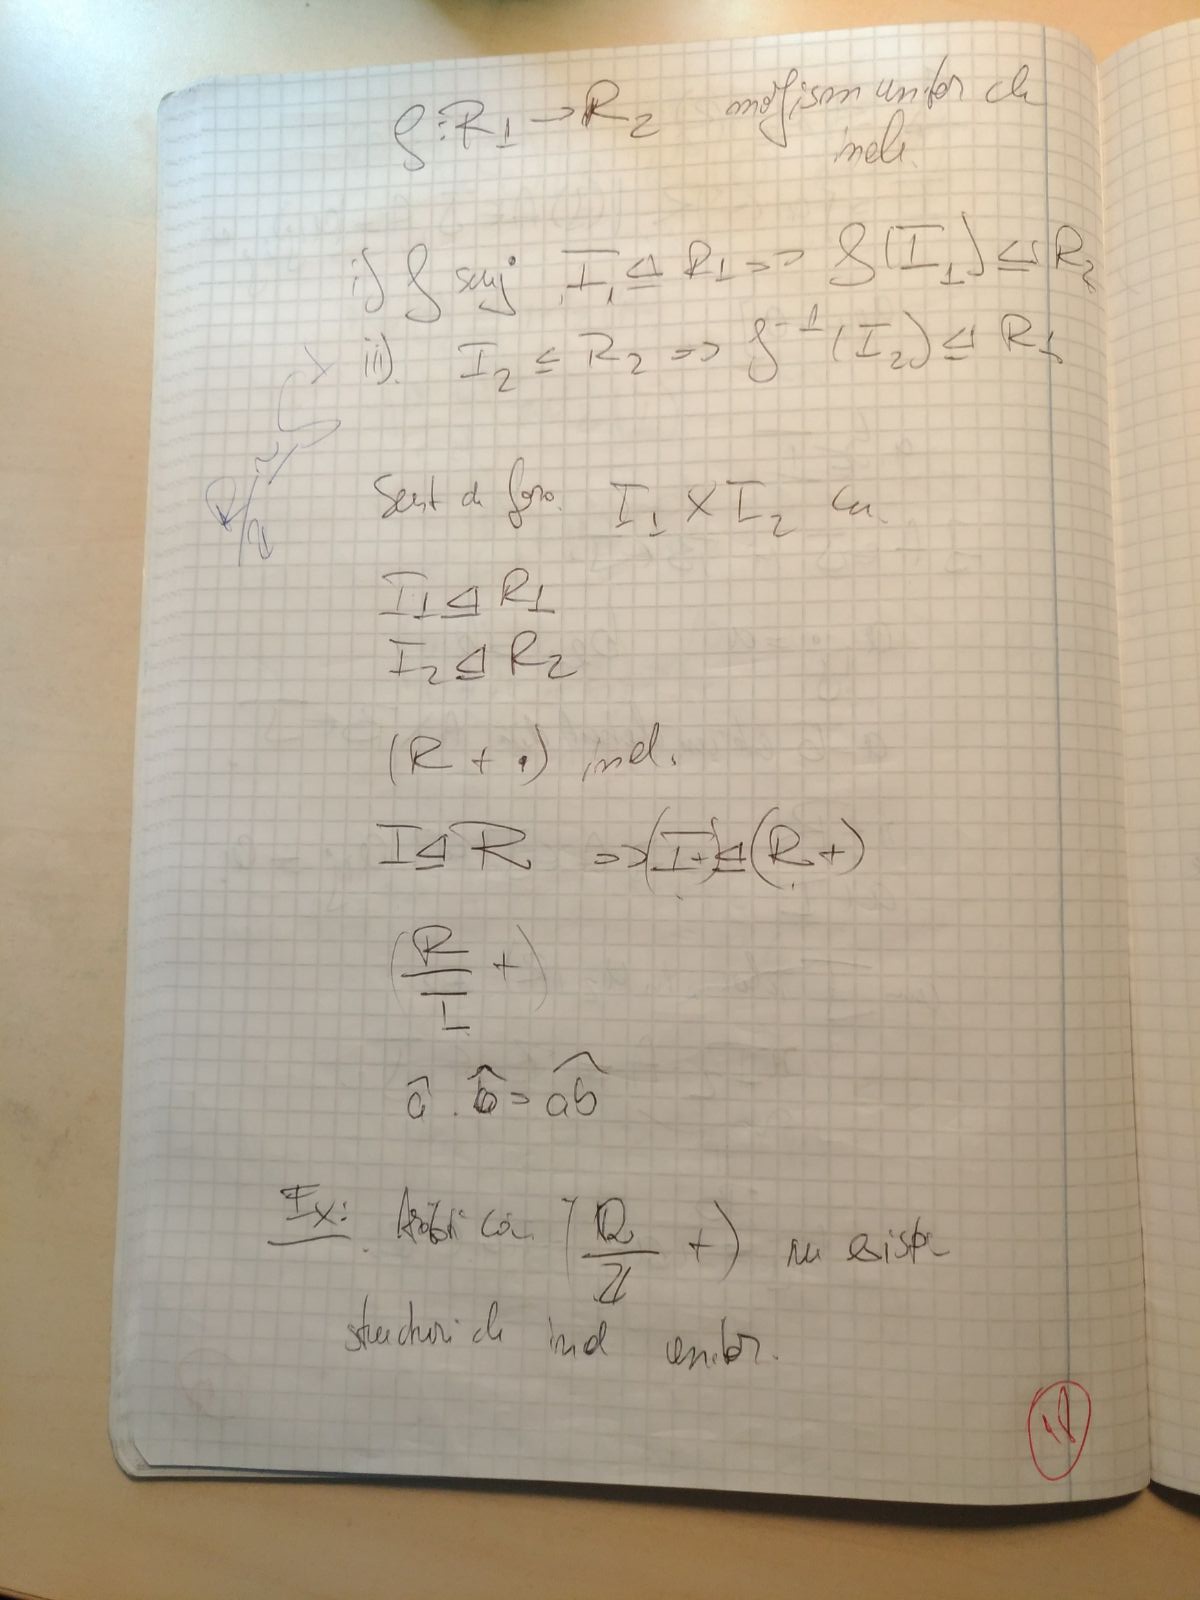 f: R₁ → R₂ morfism unitar de
inele.
i) f surj I₁ ⊴ R₁ => f(I₁) ⊴ R₂
ii). I₂ ⊴ R₂ => f⁻¹(I₂) ⊴ R₁
R/Z
Sunt de for. I₁ × I₂ cu
I₁ ⊴ R₁
I₂ ⊴ R₂
(R + ·) inel.
I ⊴ R => (I +) ⊴ (R +)
(R/I +)
â · b̂ = âb̂
Ex: că (R/Z +) nu exista
structuri de inel unitar.
18